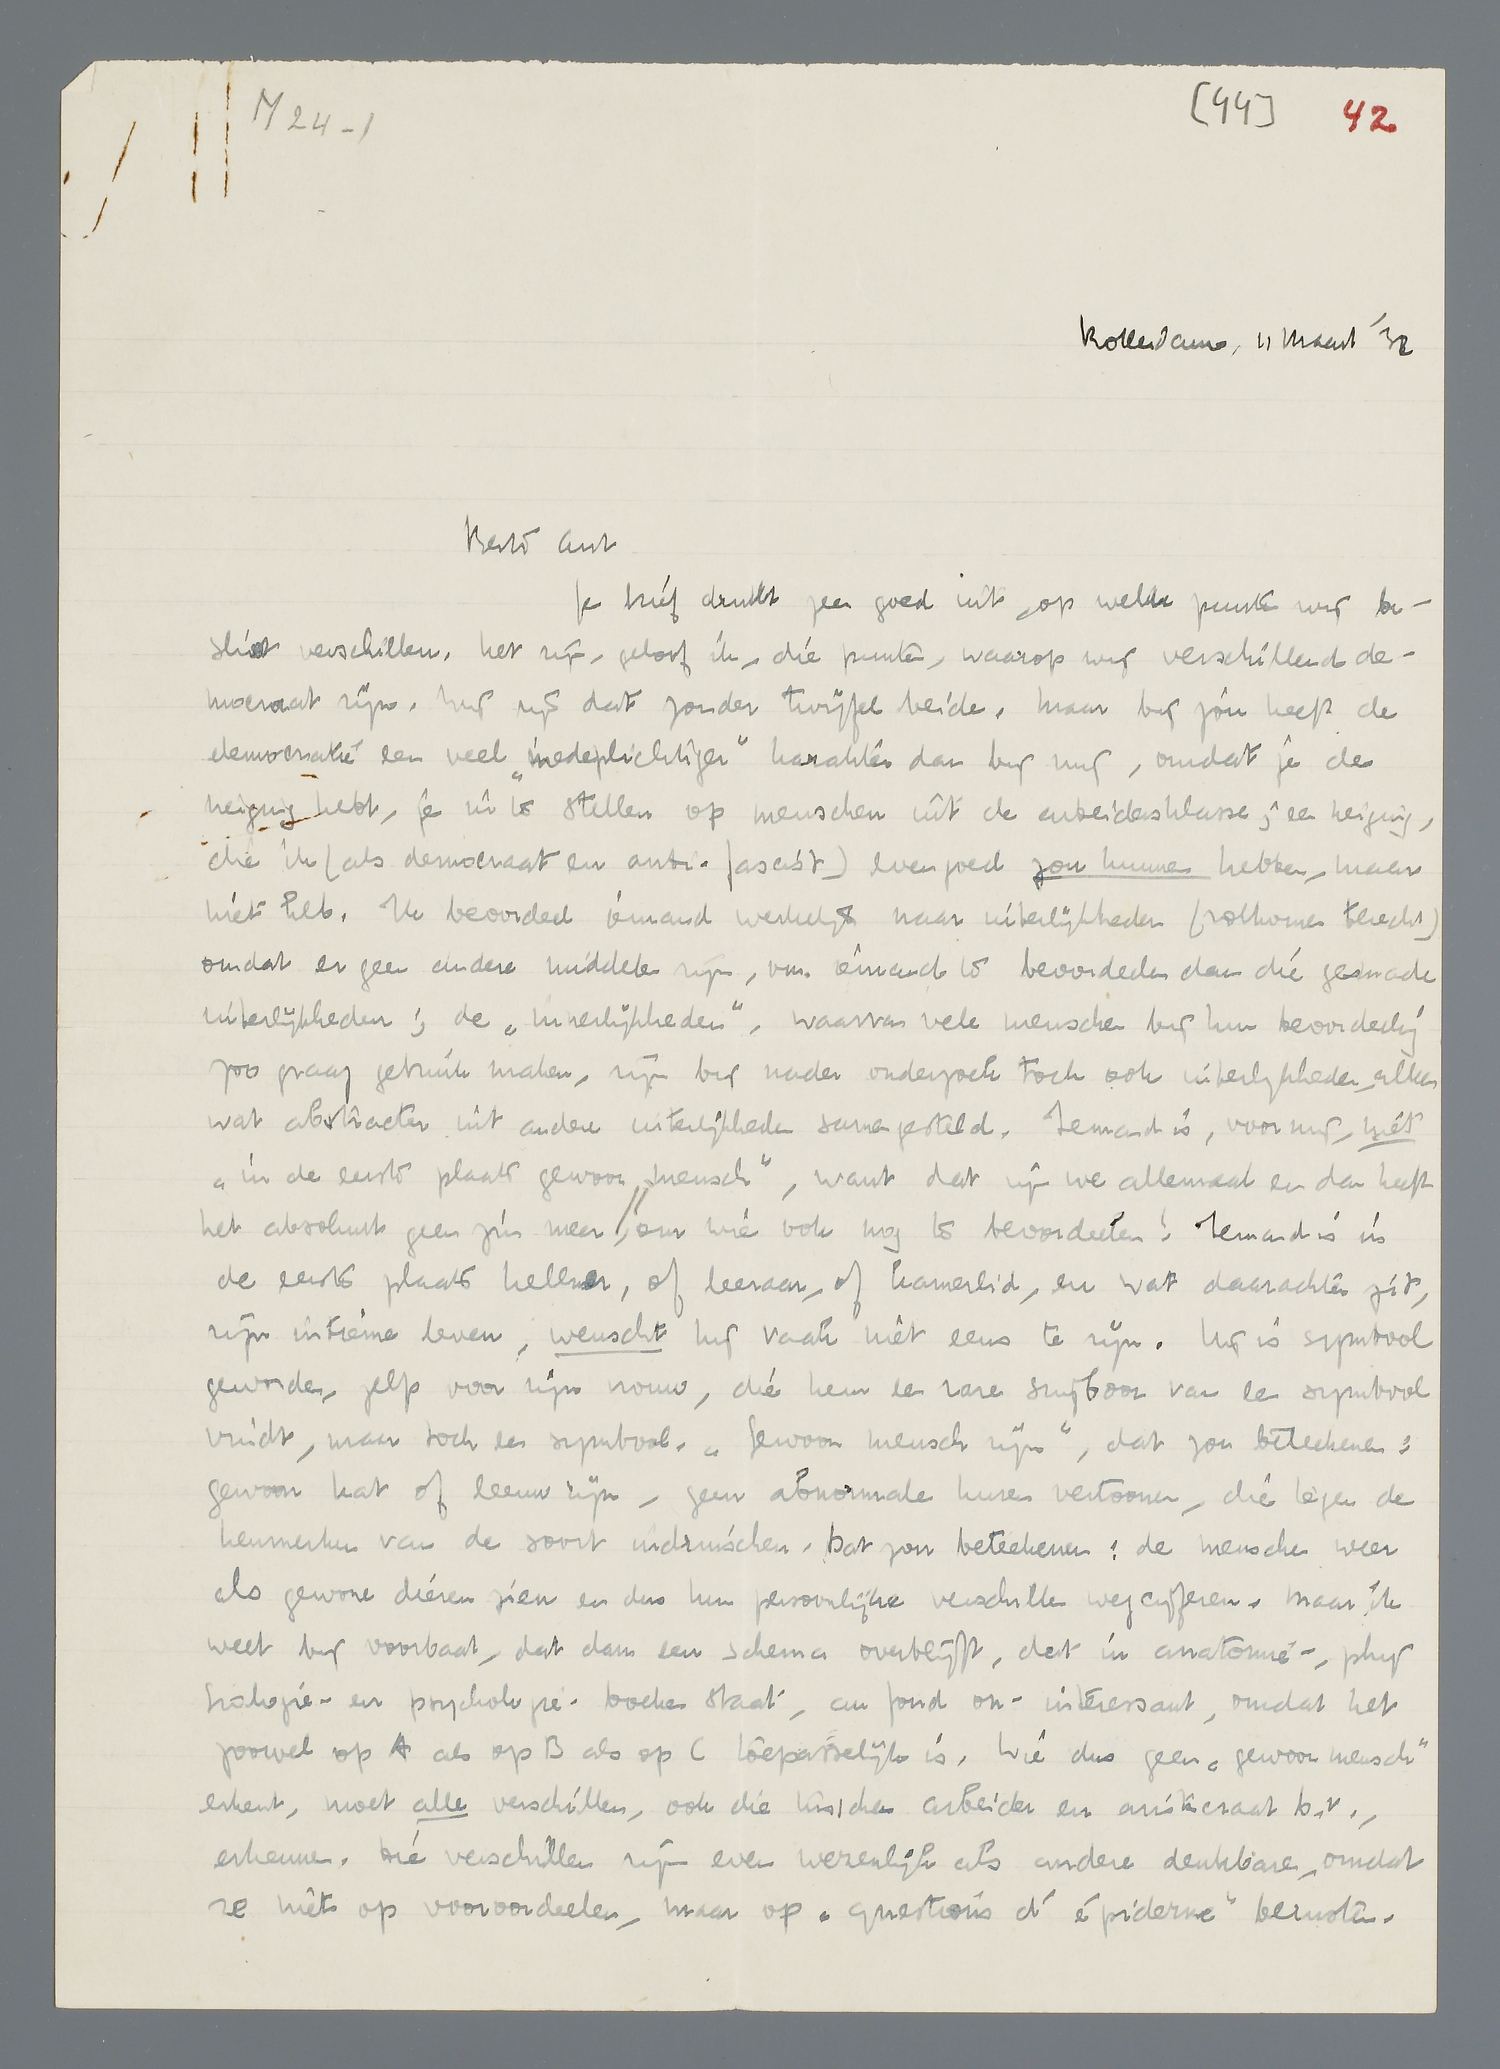 M 24-1
[44] 42
Rotterdam, 11 Maart '32
Beste Ant
Je brief drukt zeer goed uit, op welke punten wij be-
slist verschillen. Het zijn, geloof ik, die punten, waarop wij verschillend de-
mocraat zijn. Wij zijn dat zonder twijfel beide. Maar bij jou heeft de
democratie een veel „medeplichtiger" karakter dan bij mij, omdat je de
neiging hebt, je in te stellen op menschen uit de arbeidersklasse; een neiging,
die ik (als democraat en anti-fascist) evengoed zou kunnen hebben, maar
niet heb. Ik beoordeel iemand werkelijk naar uiterlijkheden (volkomen terecht)
omdat er geen andere middelen zijn, om iemand te beoordeelen dan die gesmade
uiterlijkheden; de „innerlijkheden", waarvan vele menschen bij hun beoordeeling
zoo graag gebruik maken, zijn bij nader onderzoek toch ook uiterlijkheden, alleen
wat abstracter uit andere uiterlijkheden samengesteld. Iemand is, voor mij, niet
„in de eerste plaats gewoon mensch", want dat zijn we allemaal en dan heeft
het absoluut geen zin meer, om wie ook nog te beoordeelen! Iemand is in
de eerste plaats kellner, of leeraar, of kamerlid, en wat daarachter zit,
zijn intieme leven, wenscht hij vaak niet eens te zijn. Hij is symbool
geworden, zelfs voor zijn vrouw, die hem een rare snijboon van een symbool
vindt, maar toch een symbool. „Gewoon mensch zijn", dat zou beteekenen:
gewoon kat of leeuw zijn, geen abnormale kuren vertoonen, die tegen de
kenmerken van de soort indruischen. Dat zou beteekenen: de menschen weer
als gewone dieren zien en dus hun persoonlijke verschillen wegcijferen. Maar ik
weet bij voorbaat, dat dan een schema overblijft, dat in anatomie-, phy
siologie- en psychologie-boeken staat, au fond on-interessant, omdat het
zoowel op A als op B als op C toepasselijk is. Wie dus geen „gewoon mensch"
erkent, moet alle verschillen, ook die tusschen arbeider en aristocraat b.v.,
erkennen. Die verschillen zijn even wezenlijk als andere denkbare, omdat
ze niet op vooroordeelen, maar op „questions d'épiderme" berusten.